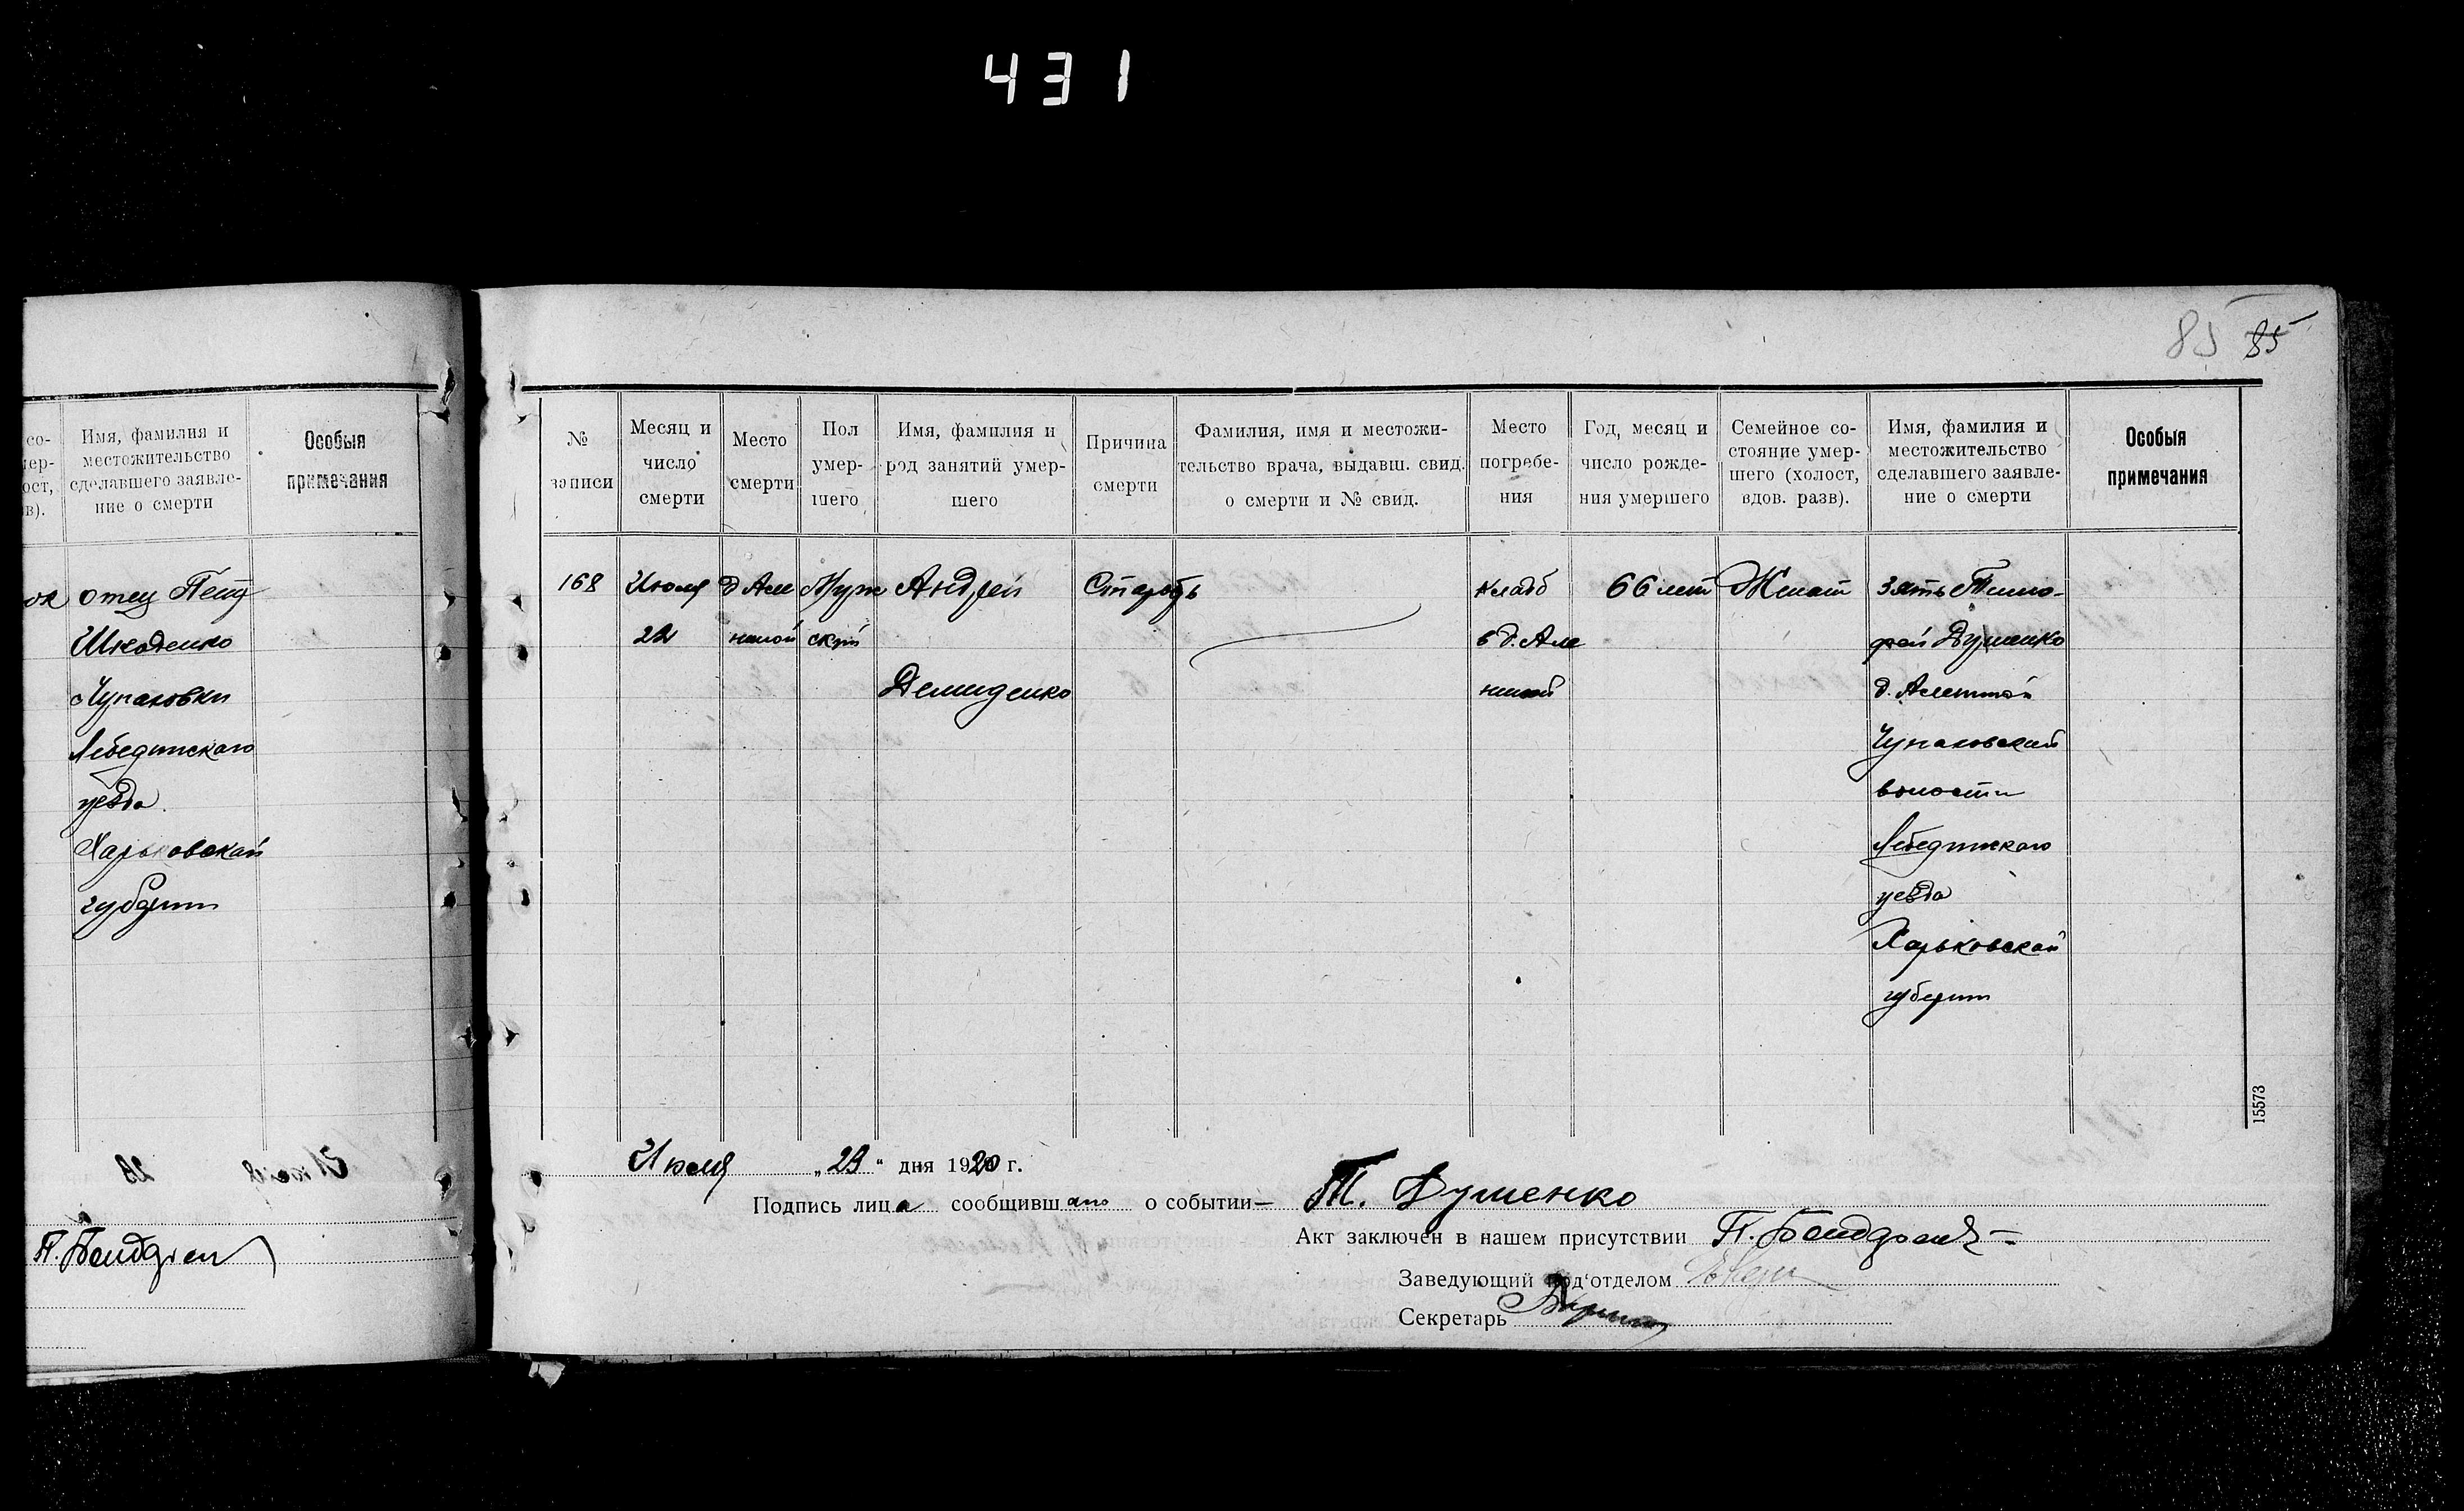 431
85 85
со-
мер-
ост,
в).
Имя, фамилия и
местожительство
сделавшего заявле-
ние о смерти
Особыя
примечания
отец Петр
Шкоденко
Чупаховки
Лебединскаго
уезда
Харьковской
губернии
Июля 23
№
записи
Месяц и
число
смерти
Место
смерти
Пол
умер-
шего
Имя, фамилия и
род занятий умер-
шего
Причина
смерти
Фамилия, имя и местожи-
тельство врача, выдавш. свид.
о смерти и № свид.
Место
погребе-
ния
Год, месяц и
число рожде-
ния умершего
Семейное со-
стояние умер-
шего (холост,
вдов. разв).
Имя, фамилия и
местожительство
сделавшего заявле-
ние о смерти
Особыя
примечания
168
Июля
22
д Але
шной
Муж
ской
Андрей
Демиденко
Старость
Кладб
в д. Але
шной
66 лет
Женат
Зять Тимо-
фей Душенко
д. Алешной
Чупаховской
волости
Лебединскаго
уезда
Харьковской
губернии
15573
Июля „23“ дня 1920 г.
Подпись лица сообщившаго о событии— Т. Душенко
Акт заключен в нашем присутствии П.
Заведующий под'отделом
Секретарь